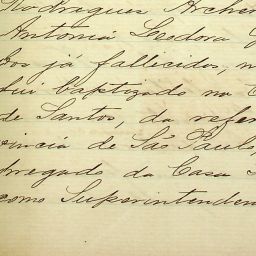 Rodrigues Archer
Antonia Leodora
dos já fallecidos, n
fui baptizado na
de Santos, da refer
vincia de São Paulo,
pregado da Casa
como Superintenden